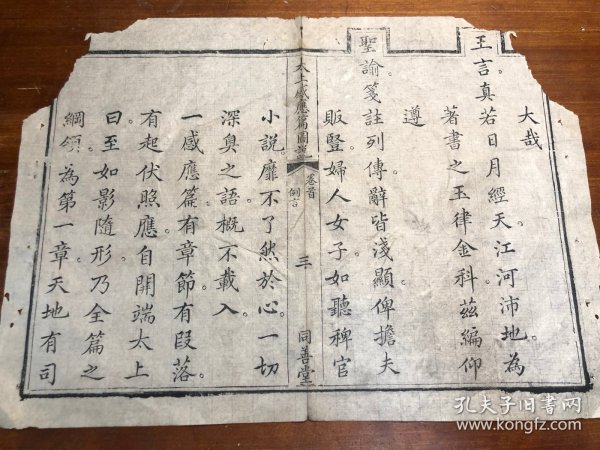 大哉
王言真若日月經天江河沛地。為
著書之玉律金科。茲編仰
遵
聖諭。箋註列傳。辭皆淺顯。俾擔夫
販豎。婦人女子。如聽稗官
太上感應篇圖說
卷首
例言
三
同善堂
小說。靡不了然於心。一切
深奧之語。概不載入。
一感應篇。有章節。有段落。
有起伏照應。自開端太上
曰。至如影隨形。乃全篇之
綱領。為第一章。天地有司
孔夫子旧书网
www.kongfz.com